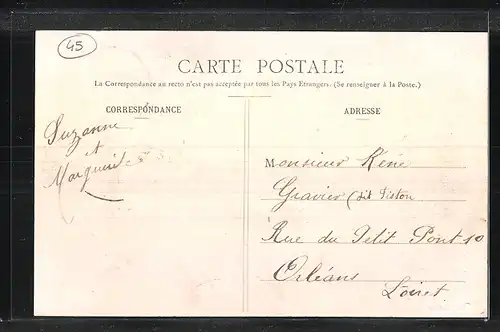 45
CARTE POSTALE
La Correspondance au recto n'est pas acceptée par tous les Pays Etrangers. (Se renseigner à la Poste.)
CORRESPONDANCE
Suzanne
et
Marguerite
ADRESSE
Monsieur René
Gravier (dit Piston
Rue du Petit Pont 10
Orléans
Loiret